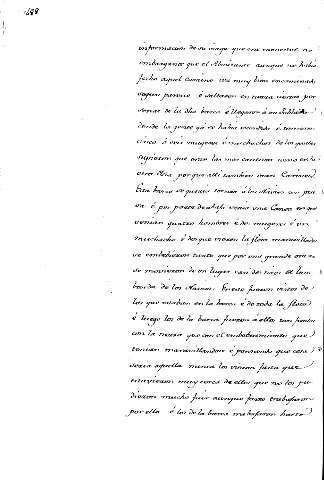 informacion de su viage que era menester no
embargante que el Almirante aunque no habia
fecho aquel camino iva muy bien encaminado
segun parecio é saltaron en tierra ciertas per
sonas de la dha barca é llegaron á un Pueblo
donde la gente ya se habia escondido é tomaron
cinco ó seis mugeres é muchachos de los quales
supieron que eran las mas cautivas como en la
otra Isla porque alli tambien eran Caribes
Esta barca se queria tornar á los Navios con su pre
sa é por parte de abaxo venia una Canoa en que
venian quatro hombres é dos mugeres é un
muchacho é desque vieron la flota maravillados
se embebieron tanto que por una grande ora no
se movieron de un lugar casi dos tiros de lom
barda de los Navios En esto fueron vistos de
los que estaban en la barca é de toda la flota
é luego los de la barca fueron á ellos tan junto
con la tierra que con el embebecimiento que
tenian maravillandose é pensando que cosa
seria aquella nunca los vieron fasta que
estuvieron muy cerca de ellos que no les pu
dieron mucho fuir aunque farto trabajaron
por ello é los de la barca